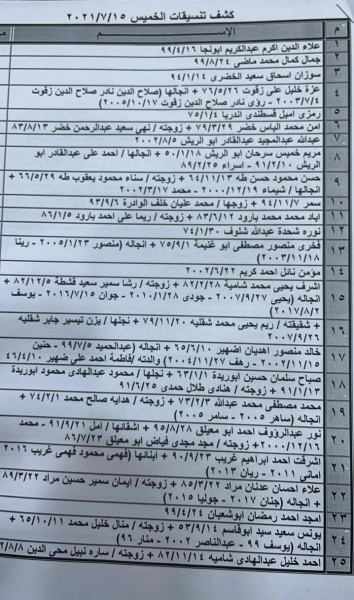 كشف تنسيقات الخميس ٢٠٢١/٧/١٥
م الإســـم
١ علاء الدين اكرم عبدالكريم ابونجا ٩٩/٤/١٦
٢ جمال كمال محمد ماضي ٩٩/٨/٢٤
٣ سوزان اسحاق سعيد الخضري ٩٤/١/١٤
٤ عزة خليل علي زقوت ٧٦/٥/٢٦ + انجالها (صلاح الدين نادر صلاح الدين زقوت
٢٠٠٣/٧/٤ - رؤى نادر صلاح الدين زقوت ٢٠٠٥/١٠/١٧)
٥ رمزى اميل قسطندى الدربا ٧٥/١/٤
٦ امن محمد الياس خضر ٧٩/٣/٢٩ + زوجته / نهي سعيد عبدالرحمن خضر ٨٣/٨/١٣
٧ عبدالله عبدالمجيد عبدالقادر ابو الريش ٢٠٠٢/٨/٥
٨ مريم خميس سرحان ابو الريش ٥٠/١/١٨ + انجالها / احمد على عبدالقادر ابو
الريش ٩١/٢/١٠ - اسراء ٨٩/٢/٢٥
٩ حسن محمود حسن طه ٦٤/١١/١٣ + زوجته / سناء محمود يعقوب طه ٦٦/٥/٢٩
انجالها / شيماء ٢٠٠٠/١٢/١٩ - محمد ٢٠٠٢/٣/١٧
١٠ سمر ٩٤/١١/٧ + زوجها / محمد عليان خلف الوادرة ٩٣/٩/٦
١١ اياد محمد محمد بارود ٨٣/٦/١٢ + زوجته / ريما على احمد بارود ٨٦/١/٥
١٢ نوره شحدة عبدالله شلوف ٧٤/١/٣٠
١٣ فخرى منصور مصطفى ابو غنيمة ٧٥/٩/١ + انجاله (منصور ٢٠٠٥/١/٢٣ - رينا
٢٠٠٣/١١/١٨)
١٤ مؤمن نائل احمد كريم ٢٠٠٢/٦/٢٢
١٥ اشرف يحيى محمد شامية ٨٢/٢/٢٨ + زوجته / رشا سمير سعيد قشطة ٨٢/١٢/٥ +
انجاله (يحيى ٢٠٠٧/٩/٢٧ - جودى ٢٠١٠/١/٢٨ - جوان ٢٠١٦/٧/١٥ - يوسف
٢٠١٧/٨/٢)
١٦ + شقيقته / ريم يحيى محمد شقليه ٧٩/١١/٢٠ + نجلها / يزن تيسير جابر شقليه
٢٠٠٧/٩/٢٦
١٧ خالد منصور اهديان اضهير ٦٥/٦/١٠ + انجاله (عبدالحميد ٩٩/٧/٥ - حنين
٢٠٠٢/١١/١٥ - رهف ٢٠٠٤/١١/٢٧) والدته /فاطمة احمد علي ضهير ٤٦/٤/١٠
١٨ صباح سلمان حسين ابوريدة ٦٣/١/١ + نجلها / محمود عبدالهادى محمود ابوريدة
٩١/١/١٣ + زوجته / هنادى طلال حمدى ٩١/٦/٢٥
١٩ محمد مصطفى محمد عبدالله ٧٣/٢/٣ + زوجته / هداية صالح محمد ٧٤/٢/١ +
انجاله (ساهر ٢٠٠٥ - سامر ٢٠٠٥)
٢٠ نور عبدالرؤوف احمد ابو معيلق ٩٥/٨/٢٨ + اشقائها / امل ٩١/٩/٢١ - محمد
٢٠٠٠/١٢/١٦ + زوجته / مجد مجدى فياض ابو معيلق ٨٦/٧/٢٣
٢١ اشرقت احمد ابراهيم غريب ٩٠/٩/٢٣ + ابنائها (فهمى محمود فهمى غريب ٢٠١٦
امانى ٢٠١١ - ريان ٢٠١٣)
٢٢ علاء احسان عدنان مراد ٨٥/٣/٢٢ + زوجته / ايمان سمير حسين مراد ٨٩/٣/٢٢
+ انجاله (جنان ٢٠١٧ - جوليا ٢٠١٥)
٢٣ امجد احمد رمضان ابوشعبان ٩٩/٤/٢٤
٢٤ يونس سعيد سيد ابوقاسم ٥٣/٩/١٤ + زوجته / منال خليل محمد ٦٥/١٠/١١ +
انجاله (يوسف ٩٩ - عبدالناصر ٢٠٠٢ - منار ٩٦)
٢٥ احمد خليل عبدالهادى شاميه ٨٢/١١/١٤ + زوجته / ساره نبيل محى الدين